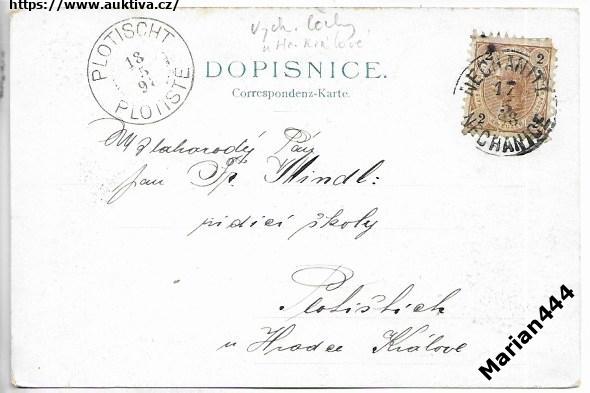 https://www.auktiva.cz/
Vých. Čechy
u Hr. Králové
PLOTISCHT
18
5
97
PLOTIŠTĚ
DOPISNICE.
Correspondenz-Karte.
2
2
NECHANITZ
17
5
98
NECHANICE
Vzlahorodý Pán
pan Šp. Mindl:
řídící školy
Plotištích
u Hradce Králové
Marian444